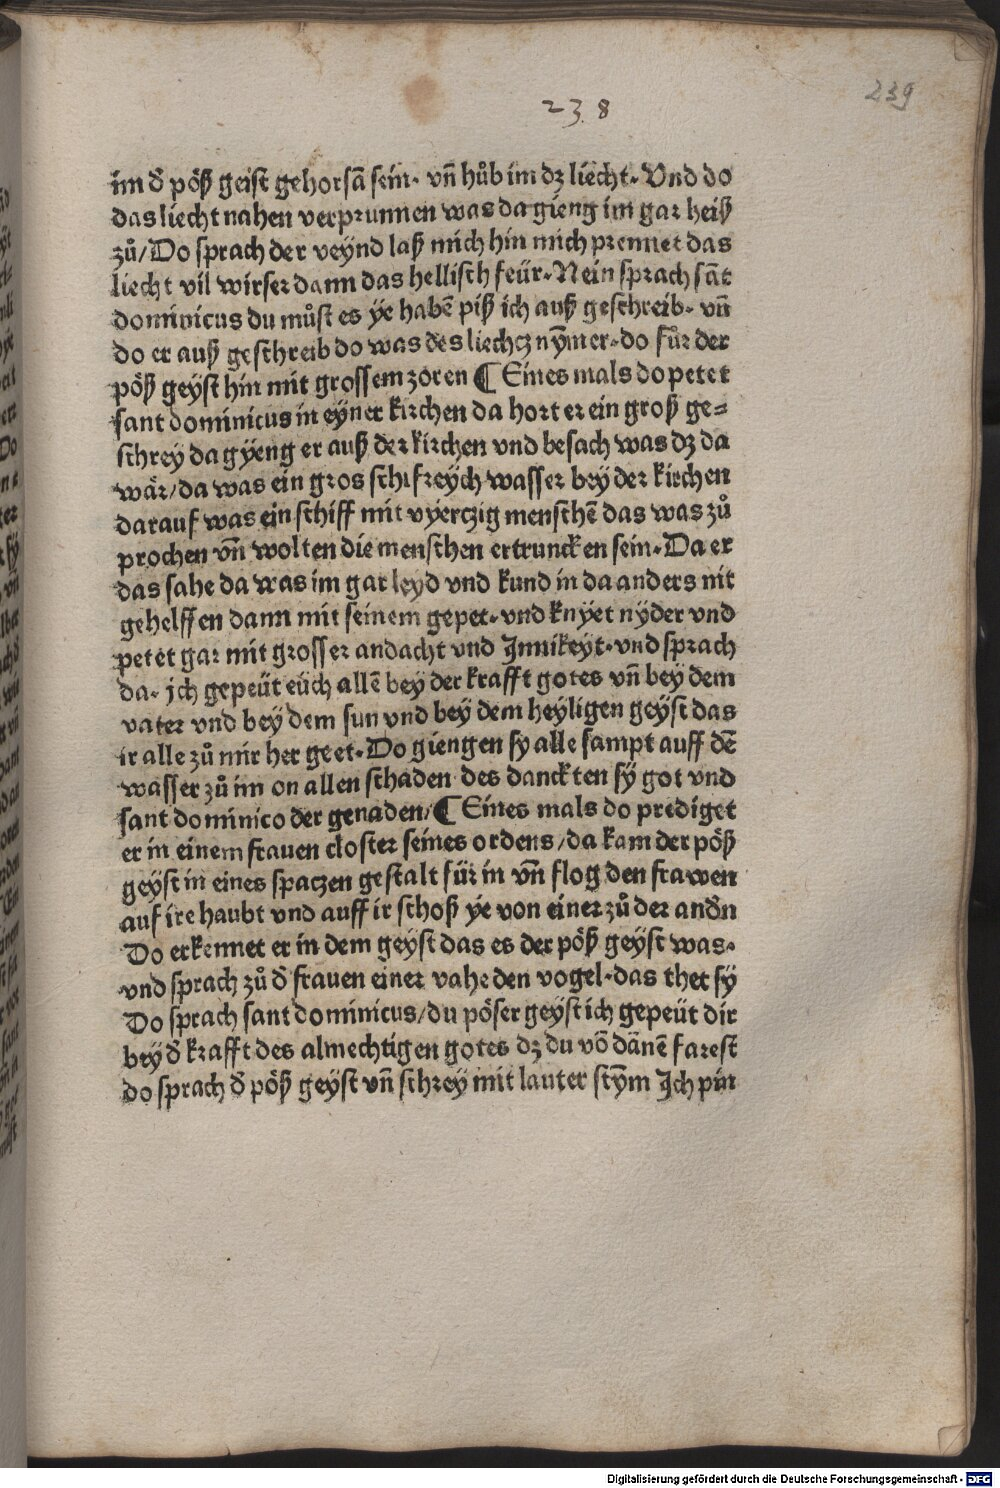 238
239
im d̄ pöß geist gehorsā sein· vn̄ hůb im dz liecht· Vnd do
das liecht nahen verprunnen was da gieng im gar heiß
zů/ Do sprach der veÿnd laß mich hin mich prennet das
liecht vil wirser dann das hellisch feür· Nein sprach sāt
dominicus du můst es ÿe habē piß ich auß geschreib· vn̄
do er auß geschreib do was des liechcz nÿmer· do fůr der
pöß geÿst hin mit grossem zoren ¶ Eines mals do petet
sant dominicus in eÿner kirchen da hort er ein groß ge=
schrey da gÿeng er auß der kirchen vnd besach was dz da
wär/ da was ein gros schifreÿch wasser beÿ der kirchen
darauf was ein schiff mit vÿerczig menschē das was zů
prochen vn̄ wolten die menschen ertruncken sein· Da er
das sahe da was im gar leyd vnd kund in da anders nit
gehelffen dann mit seinem gepet· vnd knÿet nÿder vnd
petet gar mit grosser andacht vnd Jnnikeyt· vnd sprach
da· jch gepeüt eüch allē bey der krafft gotes vn̄ bey dem
vater vnd beÿ dem sun vnd beÿ dem heÿligen geÿst das
ir alle zů mir her geet· Do giengen sy alle sampt auff dē
wasser zů im on allen schaden des danckten sÿ got vnd
sant dominico der genaden/ ¶ Eines mals do prediget
er in einem frauen closter seines ordens/ da kam der pöß
geÿst in eines spaczen gestalt für in vn̄ flog den frawen
auf ire haubt vnd auff ir schoß ÿe von einer zů der andn̄
Do erkennet er in dem geÿst das es der pöß geÿst was·
vnd sprach zů d̄ frauen einer vahe den vogel· das thet sÿ
Do sprach sant dominicus/ du pöser geÿst ich gepeüt dir
beÿ d̄ krafft des almechtigen gotes dz du vō dānē farest
do sprach d̄ pöß geÿst vn̄ schreÿ mit lauter stÿm Jch pin
Digitalisierung gefördert durch die Deutsche Forschungsgemeinschaft - DFG